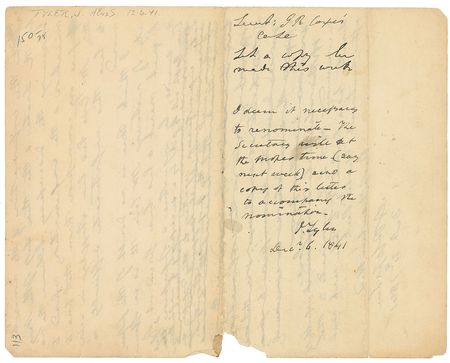 TYLER, J. ALnS 12-6-41
150
Lieut: J. R. Coxe's
Case
Let a copy be
made this week
I deem it necessary
to renominate - The
Secretary will at
the proper time (say
next week) send a
copy of this letter
to accompany the
nomination.
J. Tyler
Decr 6. 1841